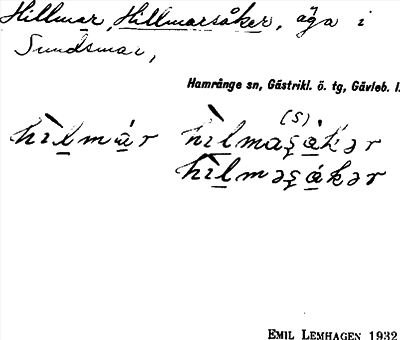 Hillmar, Hillmarsåker, äga i
Sundsmar,
Hamrånge sn, Gästrikl. ö. tg, Gävleb. l.
hìlmár hìlmaʂákər
(s)
hìlməʂákər
EMIL LEMHAGEN 1932